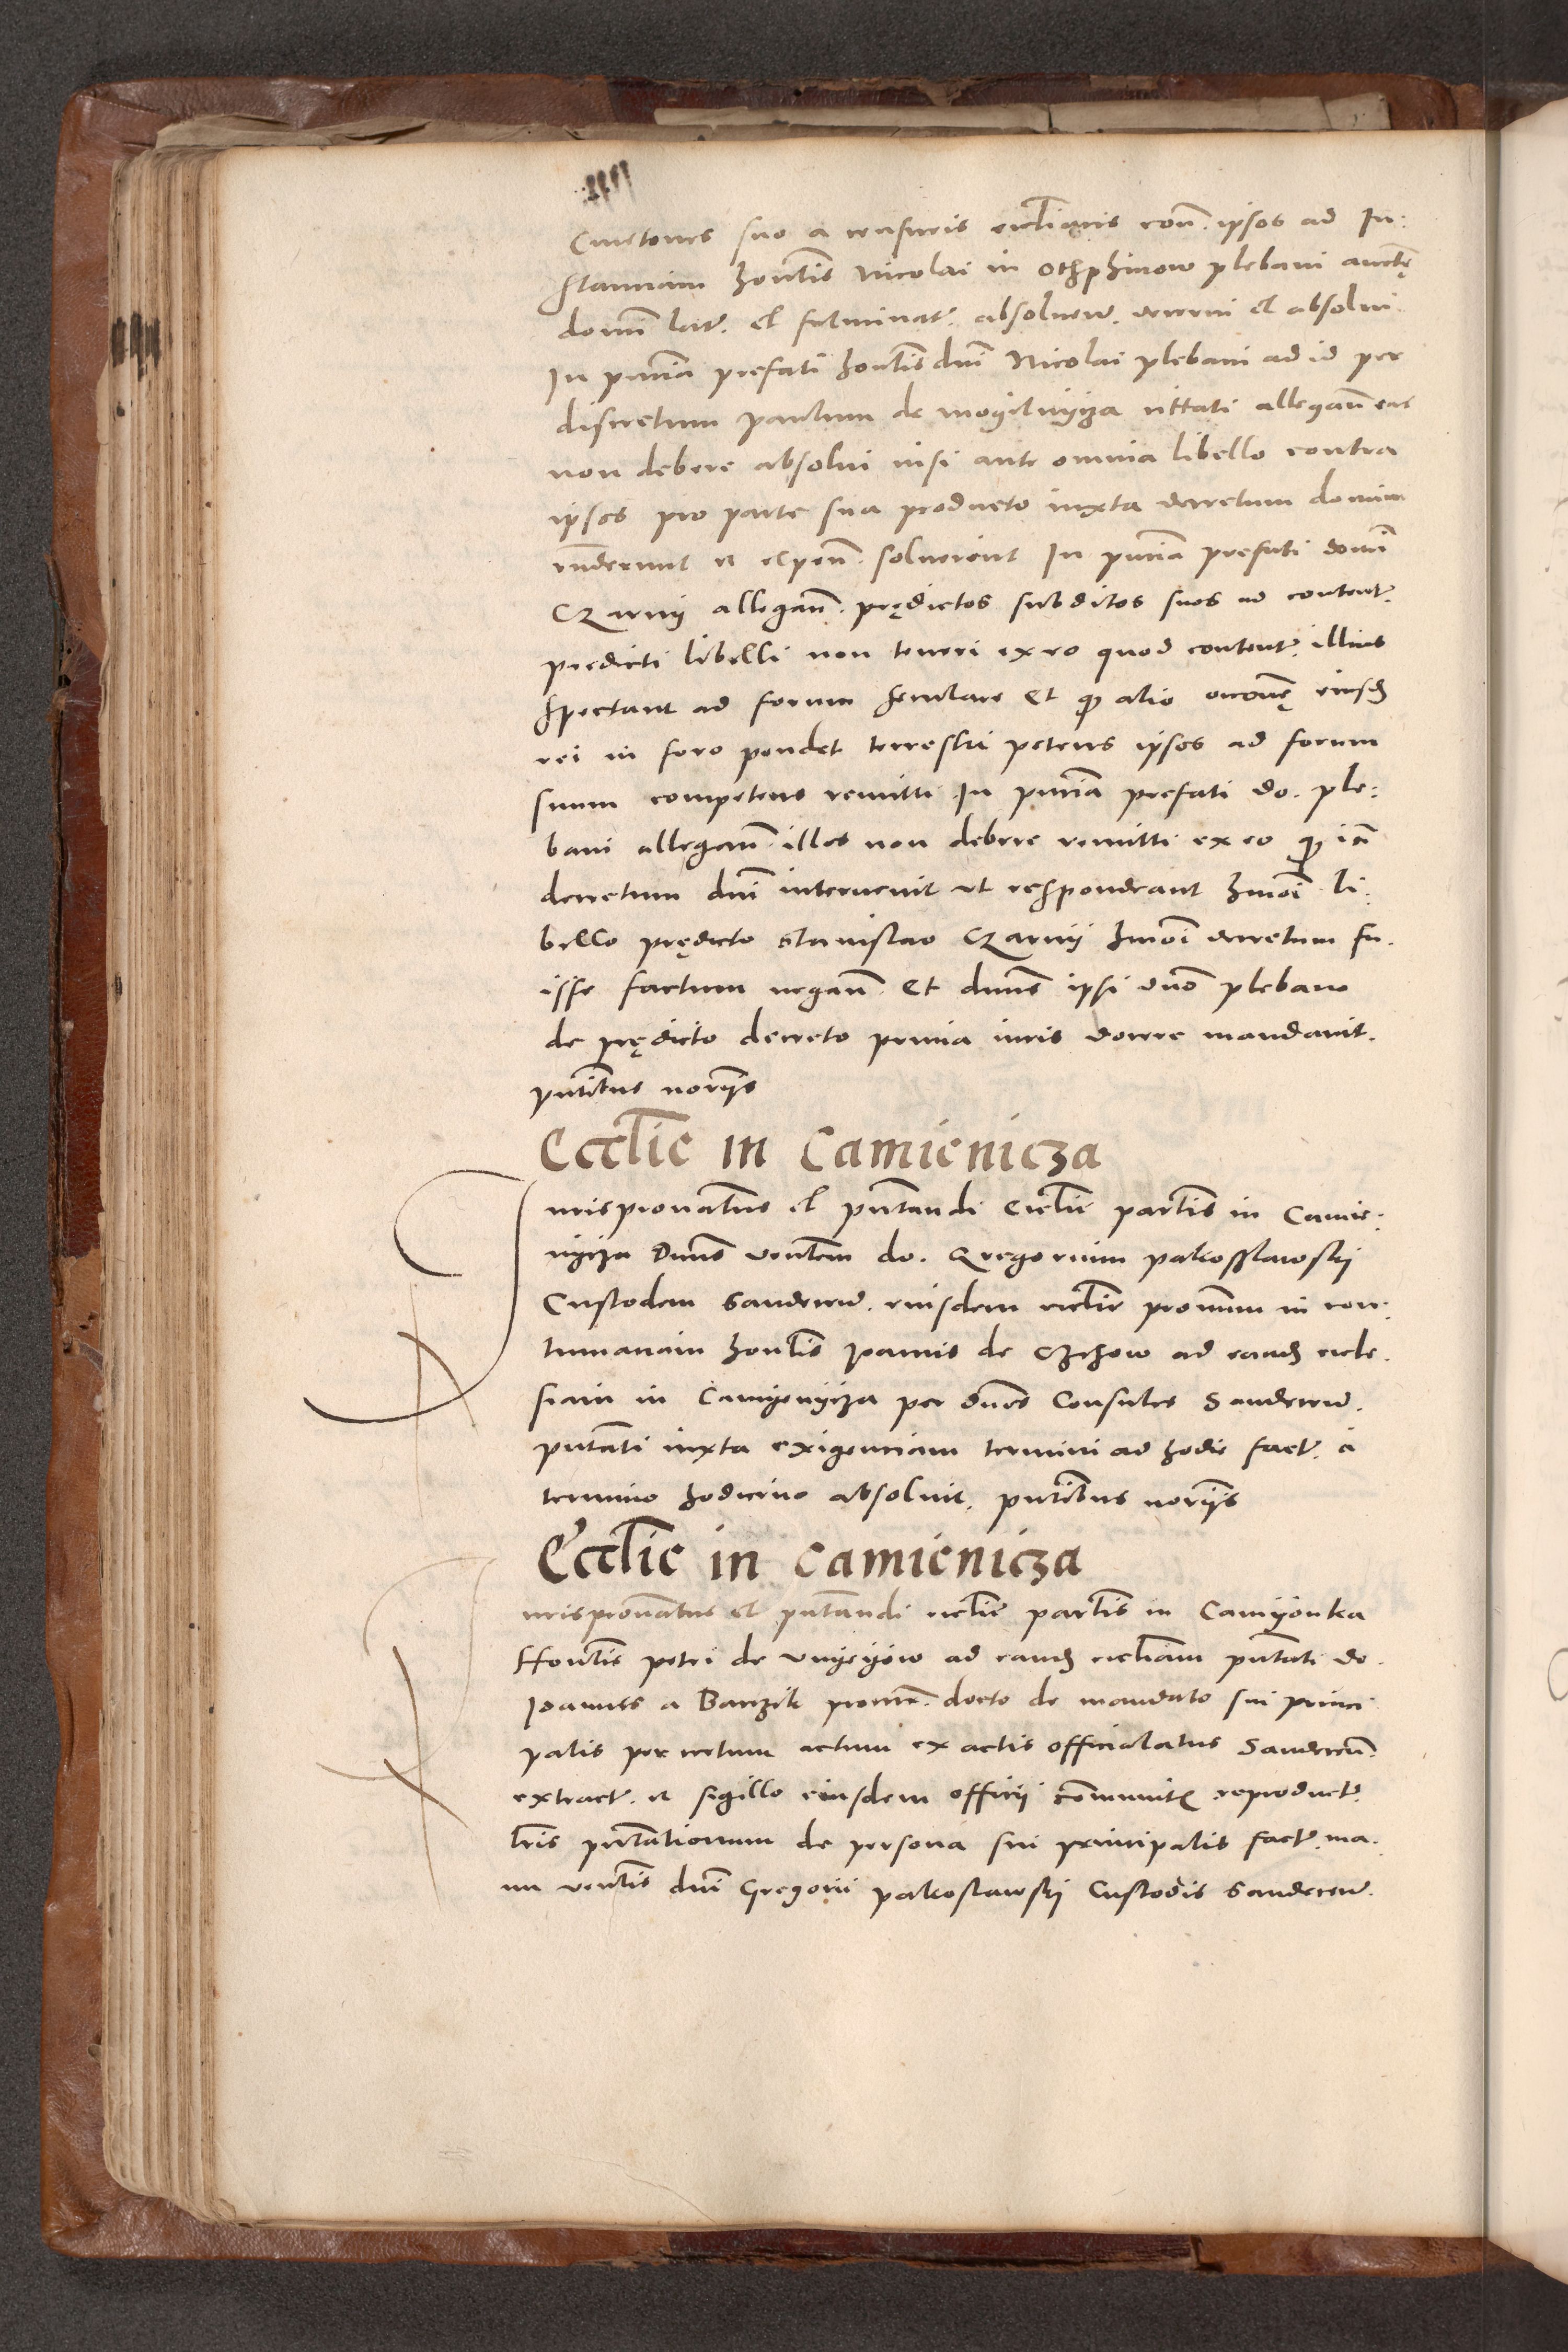 Cmetones suo a censuris eccliaticis con̄. ipsos ad In:
stantiam honblis Nicolai in Othphinow plebani auctē
domi latt. et fulminatt. absoluend. decerni et absolui
In pn̄tia prefati honblis dn̄i Nicolai plebani ad id per
discretum paulum de mogilnycza citati allegan̄ eos
non debere absolui nisi ante omnia libello contra
ipsos pro parte sua producto iuxta decretum domini
rn̄derint et expen̄. soluerint In pn̄tia prefati domī
Czarny allegan̄. prędictos subditos suos ad content.
predicti libelli non teneri ex eo quod content. illius
spectant ad forum seculare Et qz alio occōnę eiusdē
rei in foro pendet terrestri petens ipsos ad forum
suum competens remitti In pn̄tia prefati do. ple:
bani allegan̄. illos non debere remitti ex eo qz iā
decretum dn̄i interuenit vt respondeant hm̄oi li:
bello prędicto Stanislao Czarny hm̄oi decretum fu.
isse factum negan̄. Et dn̄us ipsi dn̄o plebano
de prędicto decreto primia iuris docere mandauit.
pn̄tibus noriis
Ecclie in Camienicza
Iurispronatus et pn̄tandi Ecclie partis in Camie:
nycza Dn̄us ven̄lem do. Gregorium palcosslawsky
Custodem Sandecen̄. eiusdem ecclie promm̄ in con:
tumaciam honblis Ioannis de Czchow ad eandē eccle.
siam in Camyenycza per dn̄os Consules Sandecen̄.
pn̄tati iuxta exigenciam termini ad hodie fact. a
termino hodierno absoluit. pn̄tibus noriis
Ecclie in Camienicza
Iurispronatus et pn̄tandi ecclie partis in Camyonka
Honblis petri de Vnyeyow ad eandē eccliam pn̄tati do.
Ioannes a Banzik procur̄. docto de mandato sui princi
palis per certum actum ex actis officialatus Sandecen̄.
extract. et sigillo eiusdem officii com̄unit. reproduct.
lris pn̄tationum de persona sui principalis fact. ma.
nu ven̄lis dn̄i Gregorii palcoslawsky Custodis Sandecen̄.